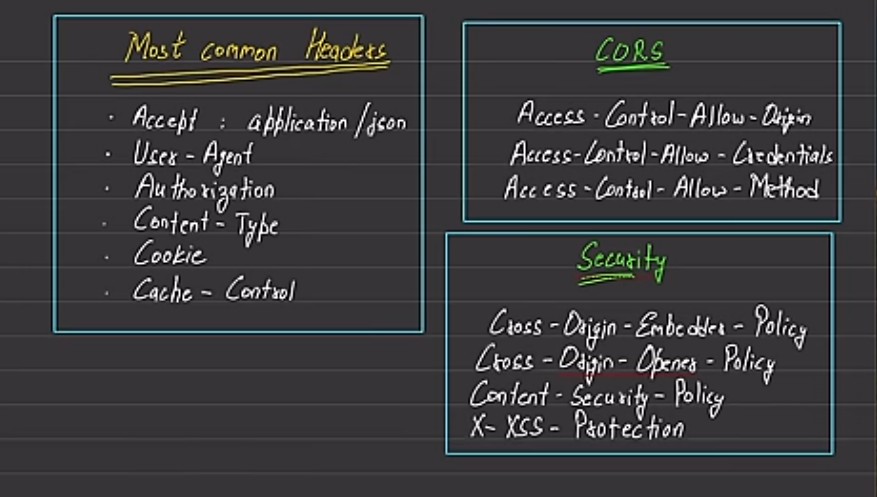 Most common Headers
· Accept : application/json
· User-Agent
· Authorization
· Content-Type
· Cookie
· Cache-Control
CORS
Access-Control-Allow-Origin
Access-Control-Allow-Credentials
Access-Control-Allow-Method
Security
Cross-Origin-Embedder-Policy
Cross-Origin-Opener-Policy
Content-Security-Policy
X-XSS-Protection